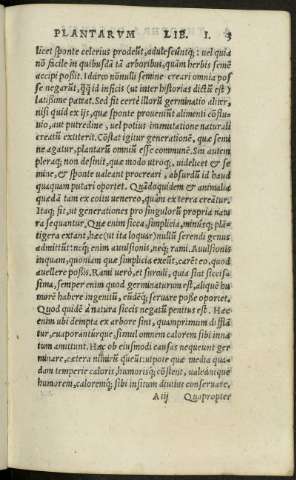 PLANTARVM LIB. I. 3
licet sponte celerius prodeūt, adulescūntq́;: uel quia
nō facile in quibusdā tā arboribus, quàm herbis semē
accipi possit. Idcirco nōnulli semine creari omnia pos
se negarūt, qd̄ id inficis (ut inter historias dictū est)
latissime patrat. Sed fit certè illorū germinatio aliter,
nisi quid ex ijs, quæ sponte proueniūt alimenti cōflu-
uio, aut putredine, uel potius inmutatione naturali
creatū extiterit. Cōstat igitur generationē, quæ semi
ne agatur, plantarū omniū esse communē. Sin autem
pleraq; non desinit, quæ modo utroq;, uidelicet & se
mine, & sponte ualeant procreari, absurdū id haud
quaquam putari oportet. Quādoquidem & animalia
quædā tam ex coitu uenereo, quàm ex terra creātur.
Itaq; sit, ut generationes pro singulorū propria natu
ra sequantur. Quæ enim sicca, simplicia, minusq́; plā-
tigera extant, hæc (ut ita loquar) nullū serendi genus
admittūt: neq; enim auulsionis, neq; rami. Auulsionis
inquam, quoniam quæ simplicia exeūt, carēt eo, quod
auellere possis. Rami uerò, et surculi, quia sint siccis-
sima, semper enim quod germinaturum est, aliquē hu-
morē habere ingenitū, eūdéq; seruare posse oportet.
Quod quidē à natura siccis negatū penitus est. Hæc
enim ubi dempta ex arbore sint, quamprimum difflā-
tur, euaporanturque, simul omnem calorem sibi inna-
tum amittunt. Hæc ob eiusmodi causas nequeunt ger
minare, cætera nimirū queūt: utpote quæ media qua-
dam temperie caloris, humorisq; cōstent, ualeantque
humorem, caloremq́; sibi insitum diutius conseruare.
A iij Quapropter